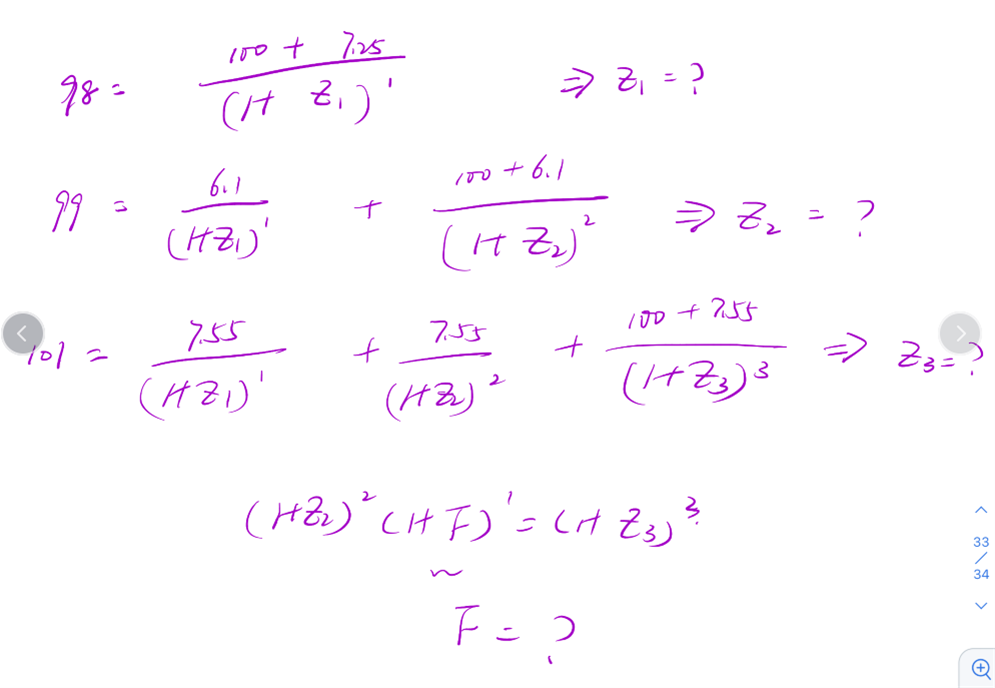 98 = (100 + 7.25) / (1+ Z₁)¹ ⇒ Z₁ = ?
99 = 6.1 / (1+Z₁)¹ + (100 + 6.1) / (1+ Z₂)² ⇒ Z₂ = ?
101 = 7.55 / (1+Z₁)¹ + 7.55 / (1+Z₂)² + (100 + 7.55) / (1+Z₃)³ ⇒ Z₃ = ?
(1+Z₂)² (1+ F)¹ = (1+ Z₃)³
F = ?
33
/
34